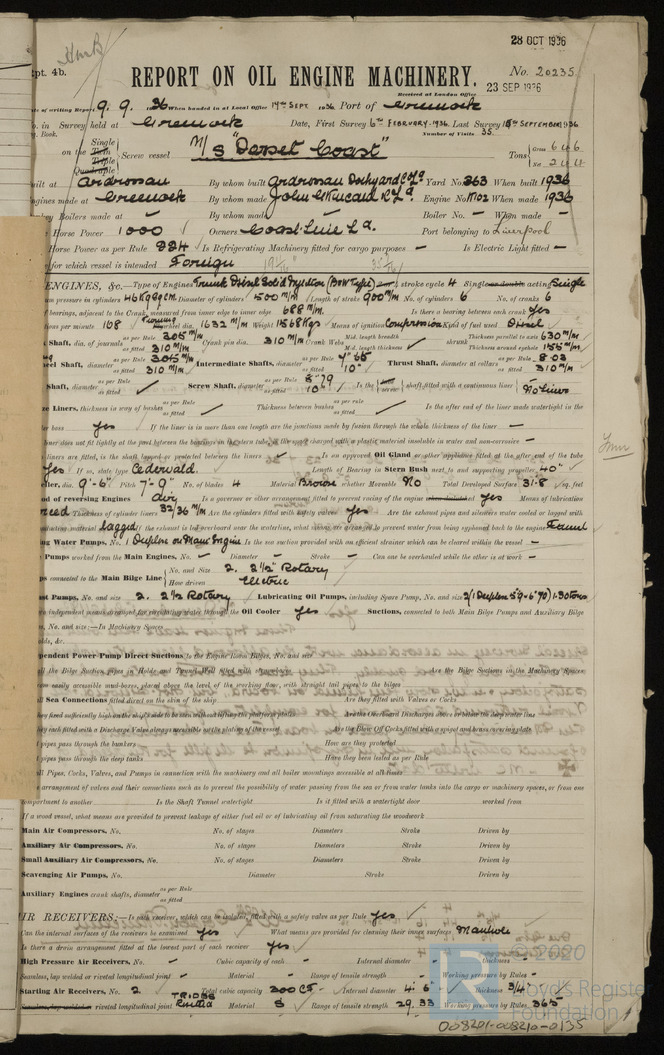 28 OCT 1936
Rpt. 4b.
REPORT ON OIL ENGINE MACHINERY.
No. 20235
Received at London Office 23 SEP 1936
Date of writing Report 9. 9. 1936 When handed in at Local Office 14TH SEPT 1936 Port of Greenock
No. in Survey held at Greenock Date, First Survey 6TH FEBRUARY. 1936 Last Survey SEPTEMBER 1936
Reg. Book. Number of Visits 35.
on the Single Twin Triple Quadruple Screw vessel M/S "Dorset Coast" Tons Gross 646 Net 244
Built at Ardrossan By whom built Ardrossan Dockyard Co Ld Yard No. 363 When built 1936
Engines made at Greenock By whom made John G Kincaid & Co Ld Engine No. K102 When made 1936
Donkey Boilers made at – By whom made – Boiler No. – When made –
Horse Power 1000 Owners Coast Line Ld. Port belonging to Liverpool
Horse Power as per Rule 224 Is Refrigerating Machinery fitted for cargo purposes – Is Electric Light fitted –
for which vessel is intended Foreign
ENGINES, &c.—Type of Engines Trunk Diesel Solid Injection (B&W Type) stroke cycle 4 Single or double acting Single
pressure in cylinders 46 Kg Diameter of cylinders 500 m/m Length of stroke 900 m/m No. of cylinders 6 No. of cranks 6
of bearings, adjacent to the Crank, measured from inner edge to inner edge 688 m/m Is there a bearing between each crank Yes
Revolutions per minute 168 Flywheel dia. 1632 m/m Weight 1568 Kgs Means of ignition Compression Kind of fuel used Diesel
Shaft, dia. of journals as per Rule 305 m/m as fitted 310 m/m Crank pin dia. 310 m/m Crank Webs Mid. length breadth – Mid. length thickness – shrunk Thickness parallel to axis 630 m/m Thickness around eyehole 155 m/m
Shaft, diameter as per Rule 305 m/m as fitted 310 m/m Intermediate Shafts, diameter as per Rule 7.65 as fitted 10" Thrust Shaft, diameter at collars as per Rule 8.03 as fitted 310 m/m
Shaft, diameter as per Rule as fitted Screw Shaft, diameter as per Rule 8.79 as fitted 10" Is the shaft fitted with a continuous liner No Liners
Liners, thickness in way of bushes as per Rule as fitted Thickness between bushes as per rule as fitted Is the after end of the liner made watertight in the
boss Yes If the liner is in more than one length are the junctions made by fusion through the whole thickness of the liner –
liner does not fit tightly at the part between the bearings in the stern tube, is the space charged with a plastic material insoluble in water and non-corrosive –
liners are fitted, is the shaft lapped or protected between the liners Is an approved Oil Gland or other appliance fitted at the after end of the tube
Yes If so, state type Cedervald. Length of Bearing in Stern Bush next to and supporting propeller 40"
Propeller, dia. 9'-6" Pitch 7'-9" No. of blades 4 Material Bronze whether Moveable No Total Developed Surface 31.8 sq. feet
Method of reversing Engines Air Is a governor or other arrangement fitted to prevent racing of the engine when declutched Yes Means of lubrication
Forced Thickness of cylinder liners 32/36 m/m Are the cylinders fitted with safety valves Yes Are the exhaust pipes and silencers water cooled or lagged with
material Lagged If the exhaust is led overboard near the waterline, what means are arranged to prevent water being syphoned back to the engine Funnel
Cooling Water Pumps, No. 1 Duplex on Main Engine Is the sea suction provided with an efficient strainer which can be cleared within the vessel –
Pumps worked from the Main Engines, No. – Diameter – Stroke – Can one be overhauled while the other is at work –
Pumps connected to the Main Bilge Line No. and Size 2. 2½" Rotary How driven Electric
Ballast Pumps, No. and size 2. 2½ Rotary Lubricating Oil Pumps, including Spare Pump, No. and size
two independent means arranged for circulating water through the Oil Cooler Yes Suctions, connected to both Main Bilge Pumps and Auxiliary Bilge
No. and size:—In Machinery Spaces
holds, &c.
Independent Power Pump Direct Suctions to the Engine Room Bilges, No. and size
all the Bilge Suction pipes in Holds and Tunnel Well fitted with Are the Bilge Suctions in the Machinery Spaces
from easily accessible mud-boxes, placed above the level of the working floor, with straight tail pipes to the bilges
all Sea Connections fitted direct on the skin of the ship Are they fitted with Valves or Cocks
they fixed sufficiently high on the ship's side to be seen without lifting the platform plates Are the Overboard Discharges above or below the deep water line
they each fitted with a Discharge Valve always accessible on the plating of the vessel Are the Blow Off Cocks fitted with a spigot and brass covering plate
pipes pass through the bunkers How are they protected
pipes pass through the deep tanks Have they been tested as per Rule
all Pipes, Cocks, Valves, and Pumps in connection with the machinery and all boiler mountings accessible at all times
arrangement of valves and their connections such as to prevent the possibility of water passing from the sea or from water tanks into the cargo or machinery spaces, or from one
compartment to another Is the Shaft Tunnel watertight Is it fitted with a watertight door worked from
If a wood vessel, what means are provided to prevent leakage of either fuel oil or of lubricating oil from saturating the woodwork
Main Air Compressors, No. No. of stages Diameters Stroke Driven by
Auxiliary Air Compressors, No. No. of stages Diameters Stroke Driven by
Small Auxiliary Air Compressors, No. No. of stages Diameters Stroke Driven by
Scavenging Air Pumps, No. Diameter Stroke Driven by
Auxiliary Engines crank shafts, diameter as per Rule as fitted
AIR RECEIVERS:—Is each receiver, which can be isolated, fitted with a safety valve as per Rule Yes
Can the internal surfaces of the receivers be examined Yes What means are provided for cleaning their inner surfaces Manhole
Is there a drain arrangement fitted at the lowest part of each receiver Yes
High Pressure Air Receivers, No. – Cubic capacity of each – Internal diameter – thickness –
Seamless, lap welded or riveted longitudinal joint – Material – Range of tensile strength – Working pressure by Rules –
Starting Air Receivers, No. 2 Total cubic capacity 200 Cft. Internal diameter 4' 6" Thickness 3/4"
Seamless, lap welded or riveted longitudinal joint Riveted Material S Range of tensile strength 29.33 Working pressure by Rules 365
© 2020
Lloyd's Register
Foundation
008201-008210-0135